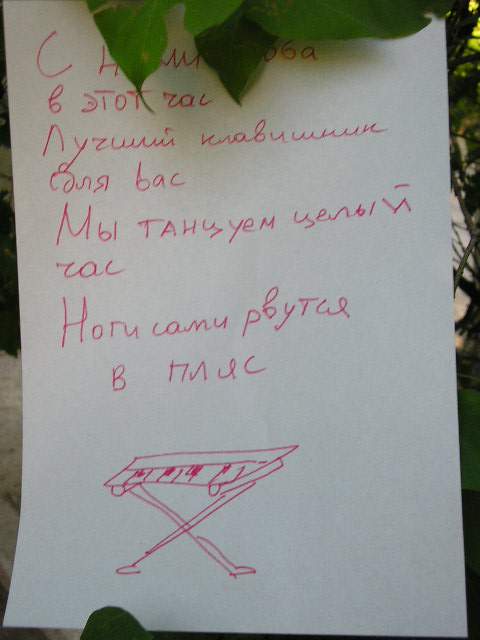 С
в этот час
Лучший клавишник
для вас
Мы танцуем целый
час
Ноги сами рвутся
в пляс